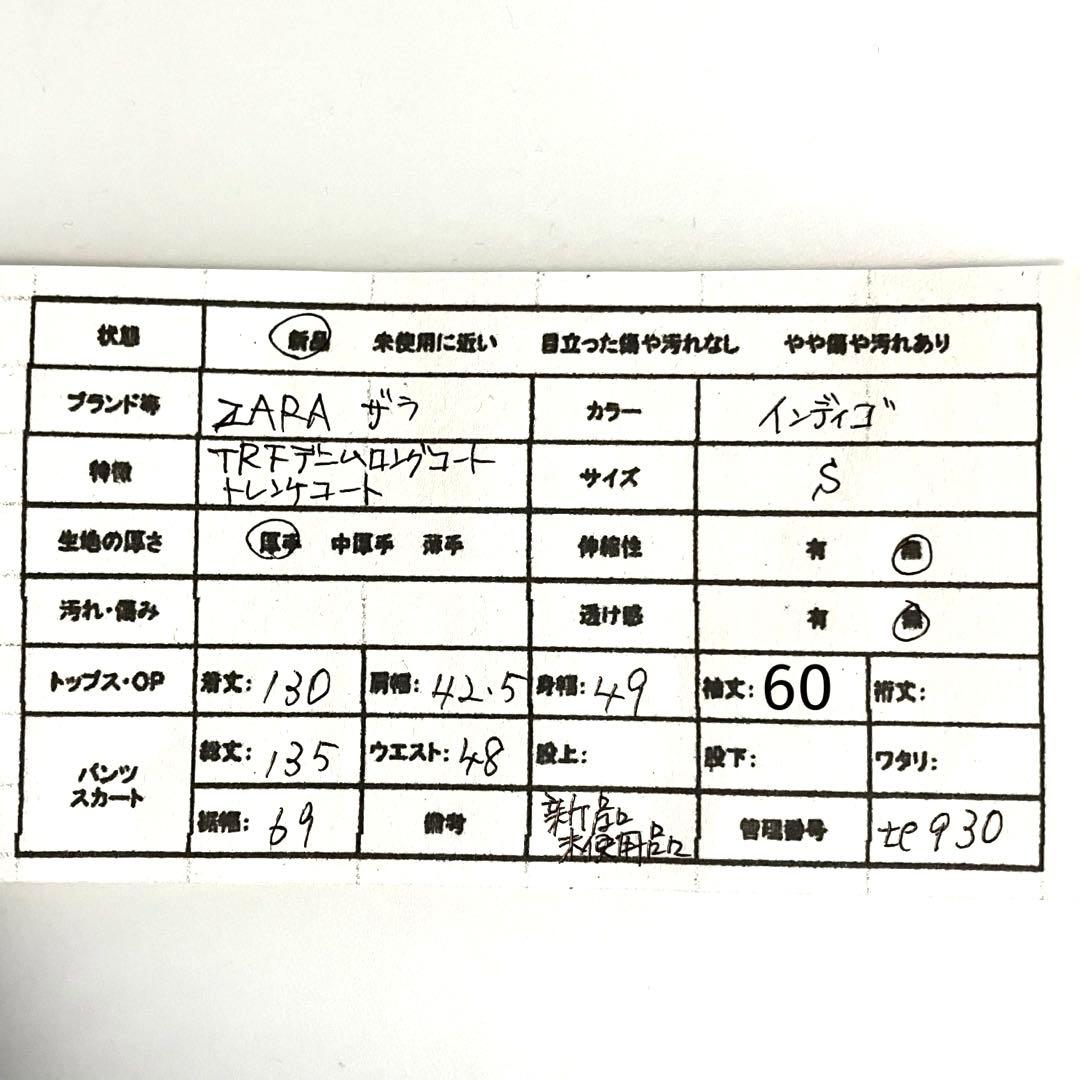 状態 新品 未使用に近い 目立った傷や汚れなし やや傷や汚れあり
ブランド等 ZARA ザラ カラー インディゴ
特徴 TRFデニムロングコート
トレンケコート サイズ S
生地の厚さ 厚手 中厚手 薄手 伸縮性 有 無
汚れ・傷み 透け感 有 無
トップス・OP 着丈: 130 肩幅: 42.5 身幅: 49 袖丈: 60 裄丈:
パンツ
スカート
総丈: 135 ウエスト: 48 股上: 股下: ワタリ:
裾幅: 69 備考 新品
未使用品 管理番号 te930